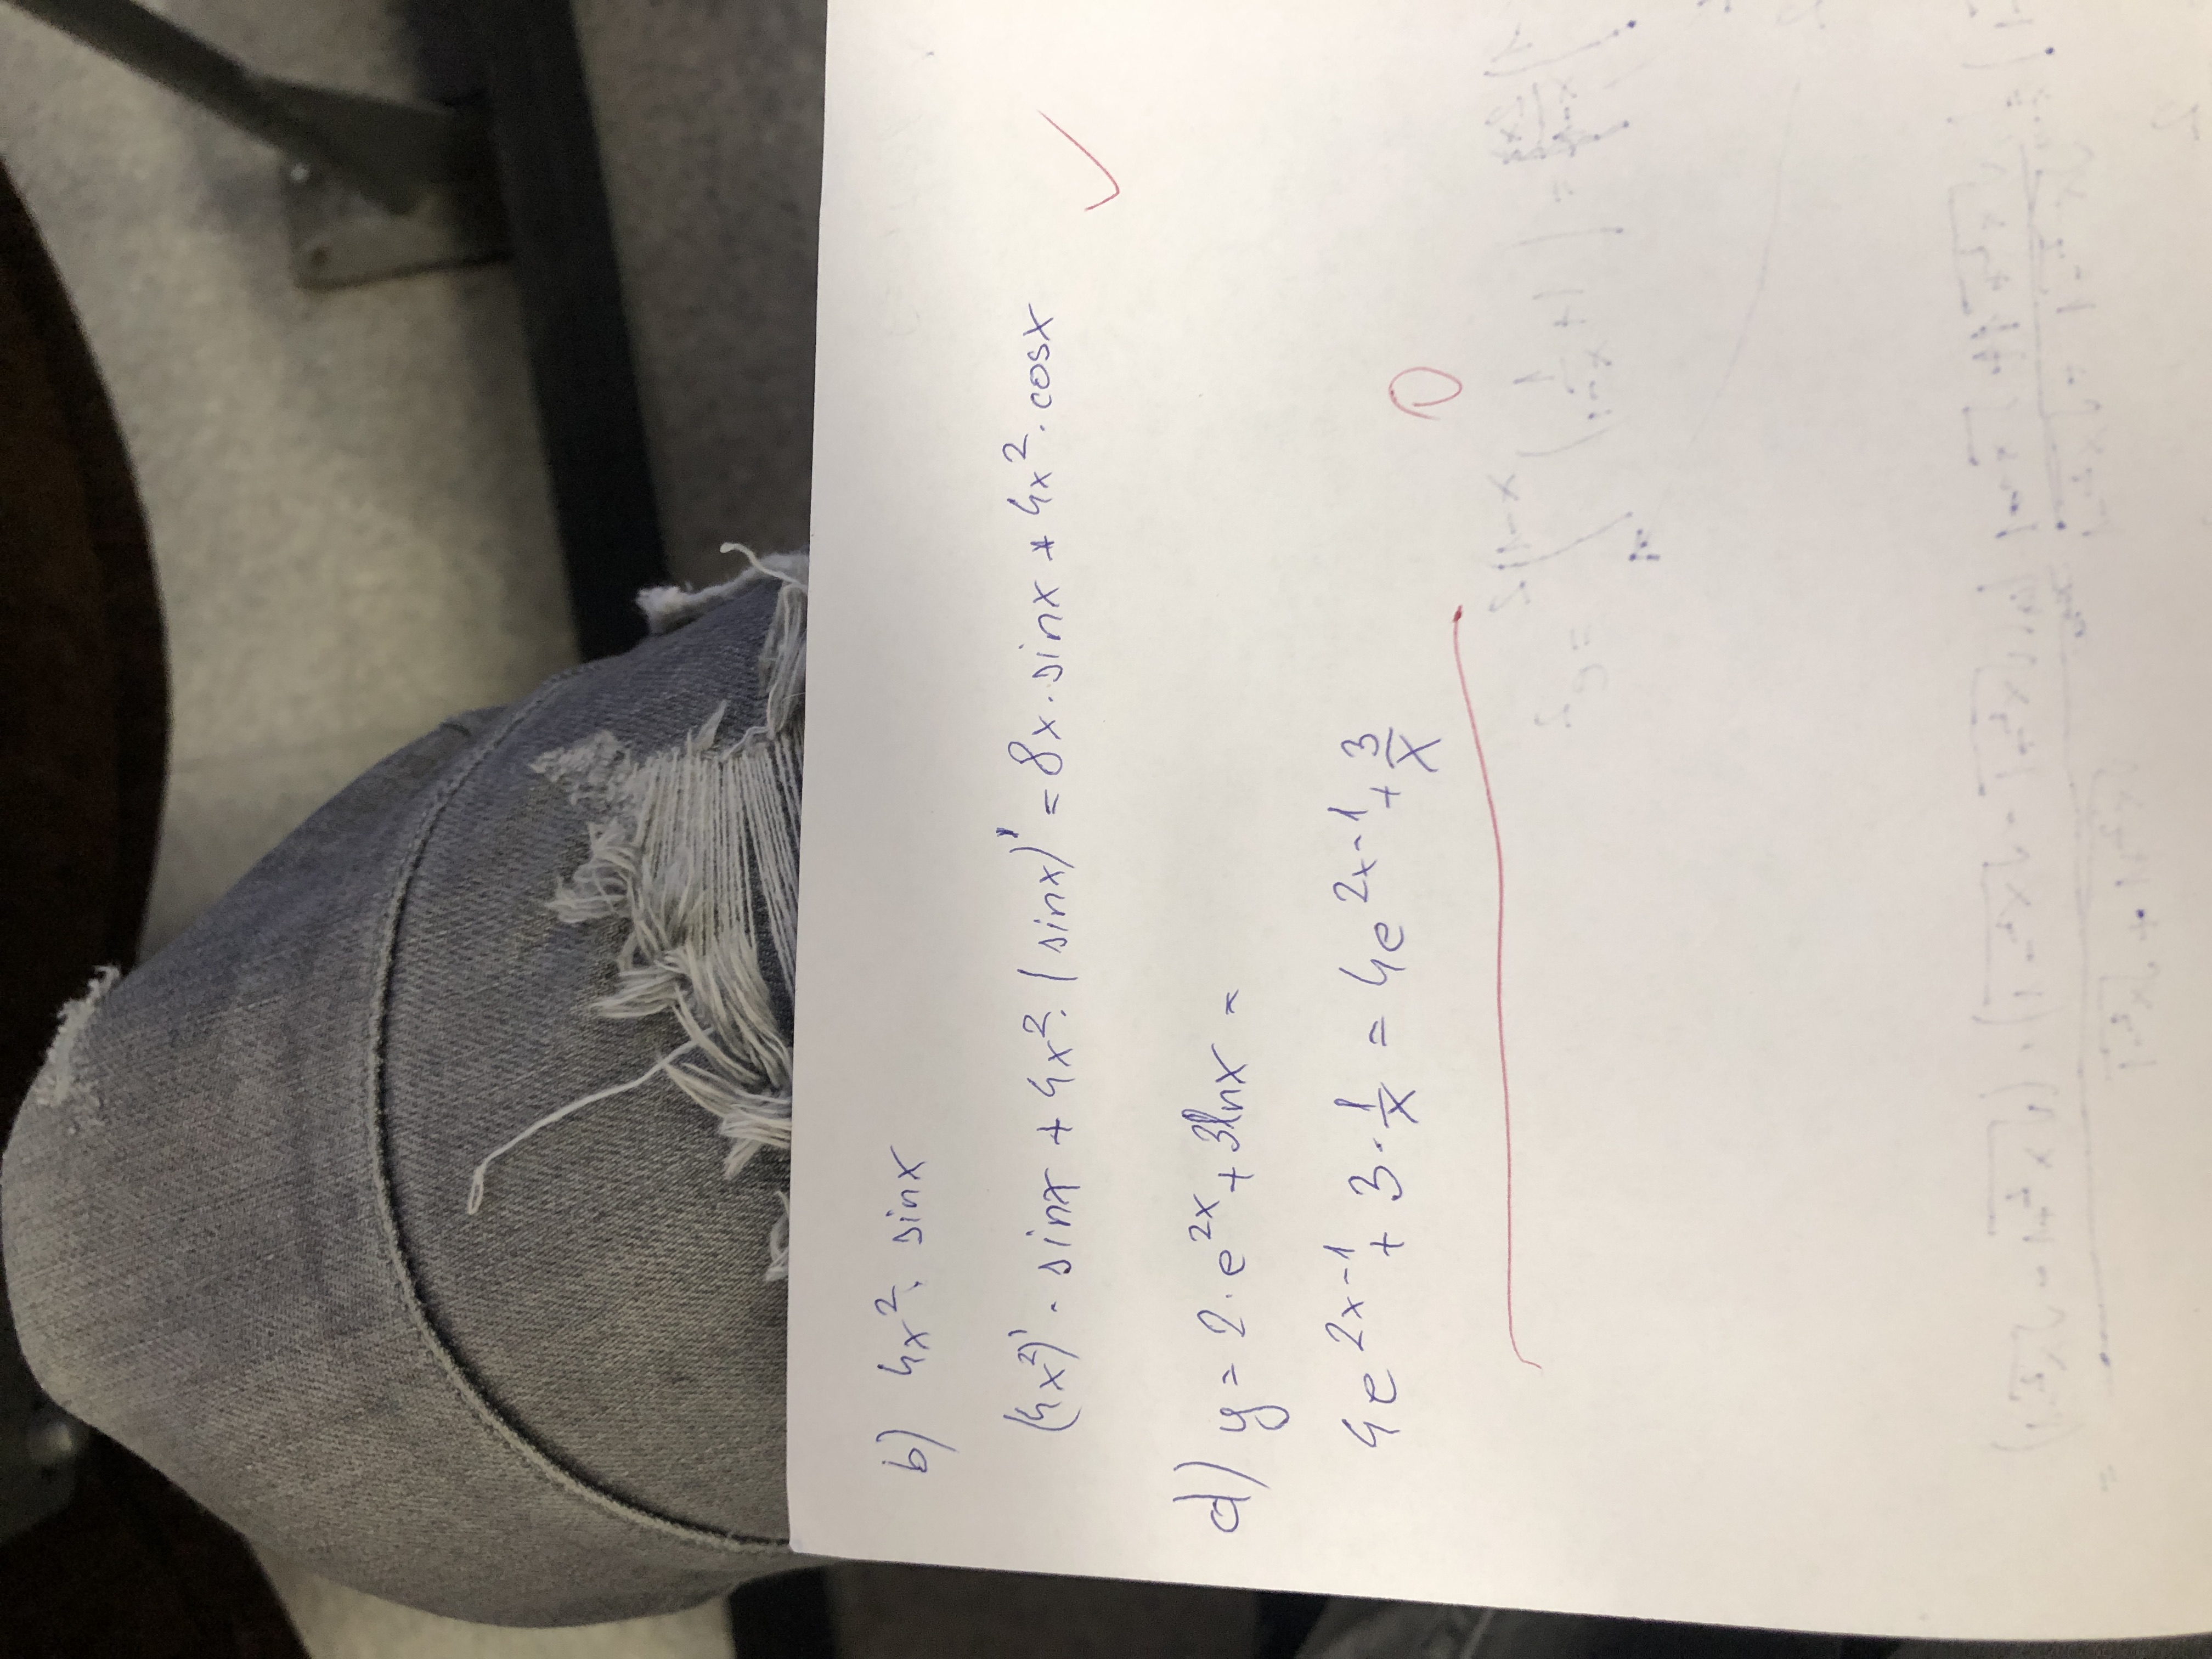 b) 4x². sinx
(4x²)' · sinx + 4x². (sinx)' = 8x · sinx + 4x² · cosx
d) y = 2 · e^2x + 3lnx =
4e^2x-1 + 3 · 1/x = 4e^2x-1 + 3/x
0